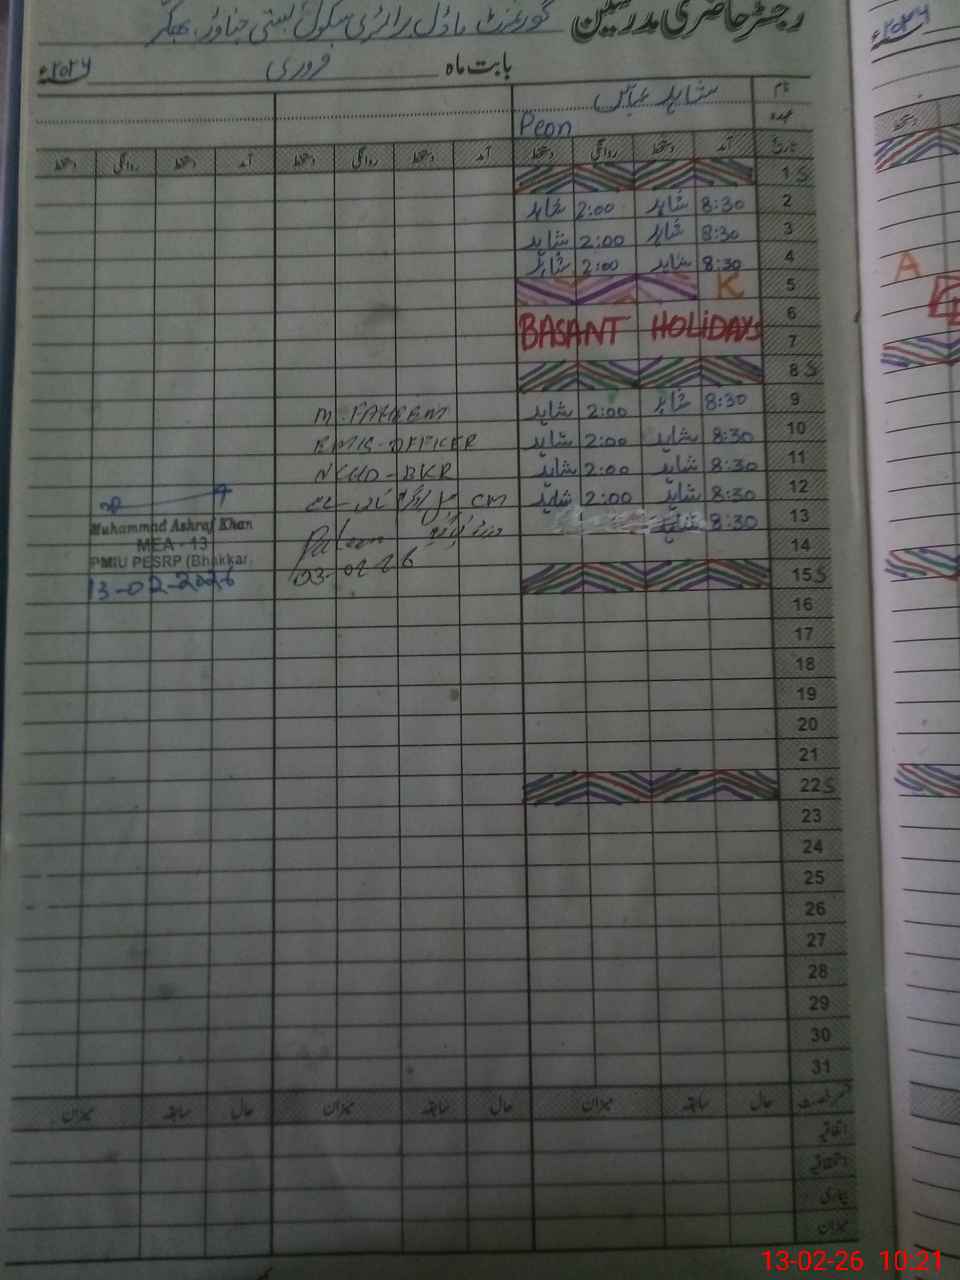 رجسٹر حاضری مدرسین گورنمنٹ ماڈل پرائمری سکول بستی
بابت ماہ فروری ۲۰۲۶ء
نام شاہد عباس
عہدہ Peon
تاریخ آمد دستخط روانگی دستخط آمد دستخط روانگی دستخط
1 S
2 8:30 شاہد 2:00 شاہد
3 8:30 شاہد 2:00 شاہد
4 8:30 شاہد 2:00 شاہد
5 K
6
7
BASANT HOLIDAYS
8 S
9 8:30 شاہد 2:00 شاہد
10 8:30 شاہد 2:00 شاہد
11 8:30 شاہد 2:00 شاہد
12 8:30 شاہد 2:00 شاہد
13 8:30 شاہد
14
15 S
16
17
18
19
20
21
22 S
23
24
25
26
27
28
29
30
31
M. FAHEEM
EMIS-OFFICER
BKR
CM
03-02-26
Muhammad Ashraf Khan
MEA - 13
PMIU PESRP (Bhakkar)
13-02-2026
حال سابقہ میزان حال سابقہ میزان حال سابقہ میزان
اتفاقیہ
استحقاقیہ
بیماری
میزان
۲۰۲۶
دستخط
A
13-02-26 10:21